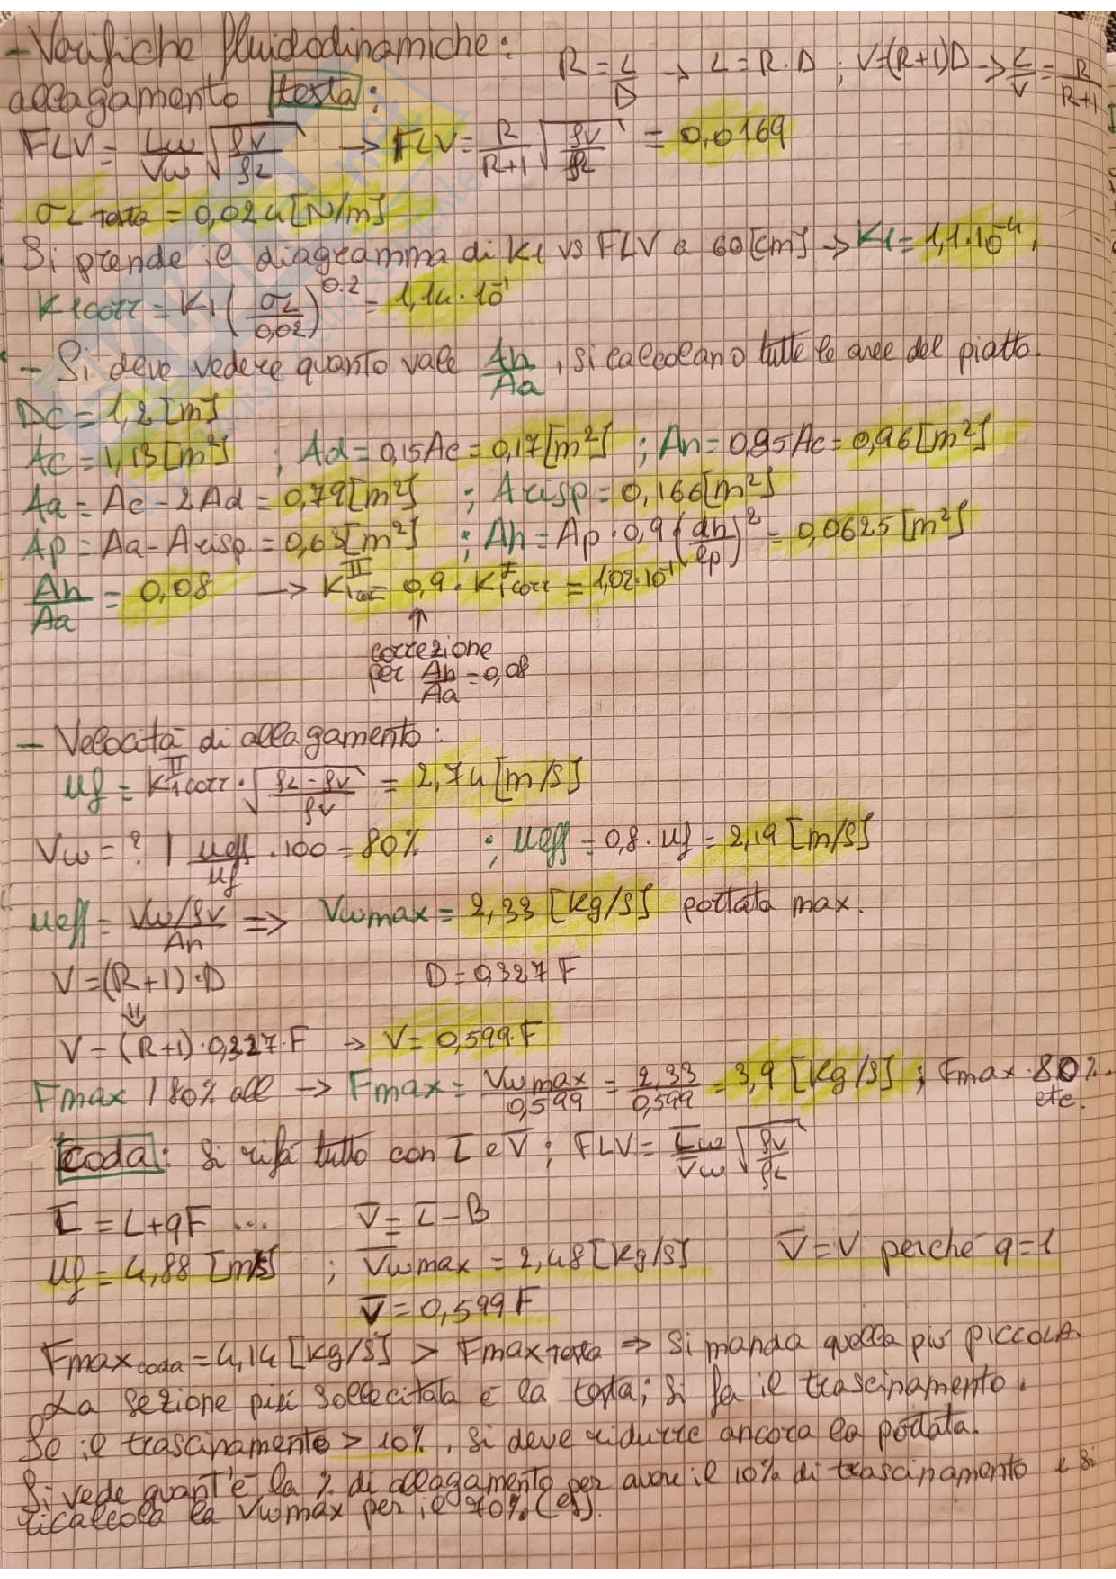 - Verifiche fluidodinamiche:
R = L/D → L = R·D ; V=(R+1)D → L/V = R/R+1
allagamento testa:
FLV = Lw/Vw √(ρV/ρL) → FLV = R/R+1 √(ρV/ρL) = 0,0169
σL testa = 0,024 [N/m]
Si prende il diagramma di K1 vs FLV a 60 [cm] → K1 = 1,1·10⁻¹
K1corr = K1 (σL/0,02)^0.2 = 1,14·10⁻¹
- Si deve vedere quanto vale Ah/Aa, si calcolano tutte le aree del piatto.
Dc = 1,2 [m]
Ac = 1,13 [m²] ; Ad = 0,15Ac = 0,17 [m²] ; An = 0,85Ac = 0,96 [m²]
Aa = Ac - 2Ad = 0,79 [m²] ; Arisp = 0,166 [m²]
Ap = Aa - Arisp = 0,63 [m²] ; Ah = Ap·0,9 (dh/lp)² = 0,0625 [m²]
Ah/Aa = 0,08 → K1corr^II = 0,9·K1corr^I = 1,02·10⁻¹
↑
correzione
per Ah/Aa = 0,08
- Velocità di allagamento:
uf = K1corr^II · √(ρL-ρV/ρV) = 2,74 [m/s]
Vw = ? | ueff/uf ·100 = 80% ; ueff = 0,8·uf = 2,19 [m/s]
ueff = Vw/ρV/An => Vwmax = 2,33 [kg/s] portata max.
V = (R+1)·D D = 0,327 F
⇓
V = (R+1)·0,327·F → V = 0,599·F
Fmax | 80% all → Fmax = Vwmax/0,599 = 2,33/0,599 = 3,9 [kg/s] ; Fmax·80%
etc.
coda: Si rifà tutto con L̅ e V̅ ; FLV = L̅w/V̅w √(ρV/ρL)
L̅ = L+qF ... V̅ = L̅-B
uf = 4,88 [m/s] ; V̅wmax = 2,48 [kg/s] V̅=V perché q=1
V̅ = 0,599 F
Fmax coda = 4,14 [kg/s] > Fmax testa → si manda quella più piccola.
La sezione più sollecitata è la testa; si fa il trascinamento.
Se il trascinamento > 10%, si deve ridurre ancora la portata.
Si vede quant'è la % di allagamento per avere il 10% di trascinamento e si
ricalcola la Vwmax per il 70% (es).